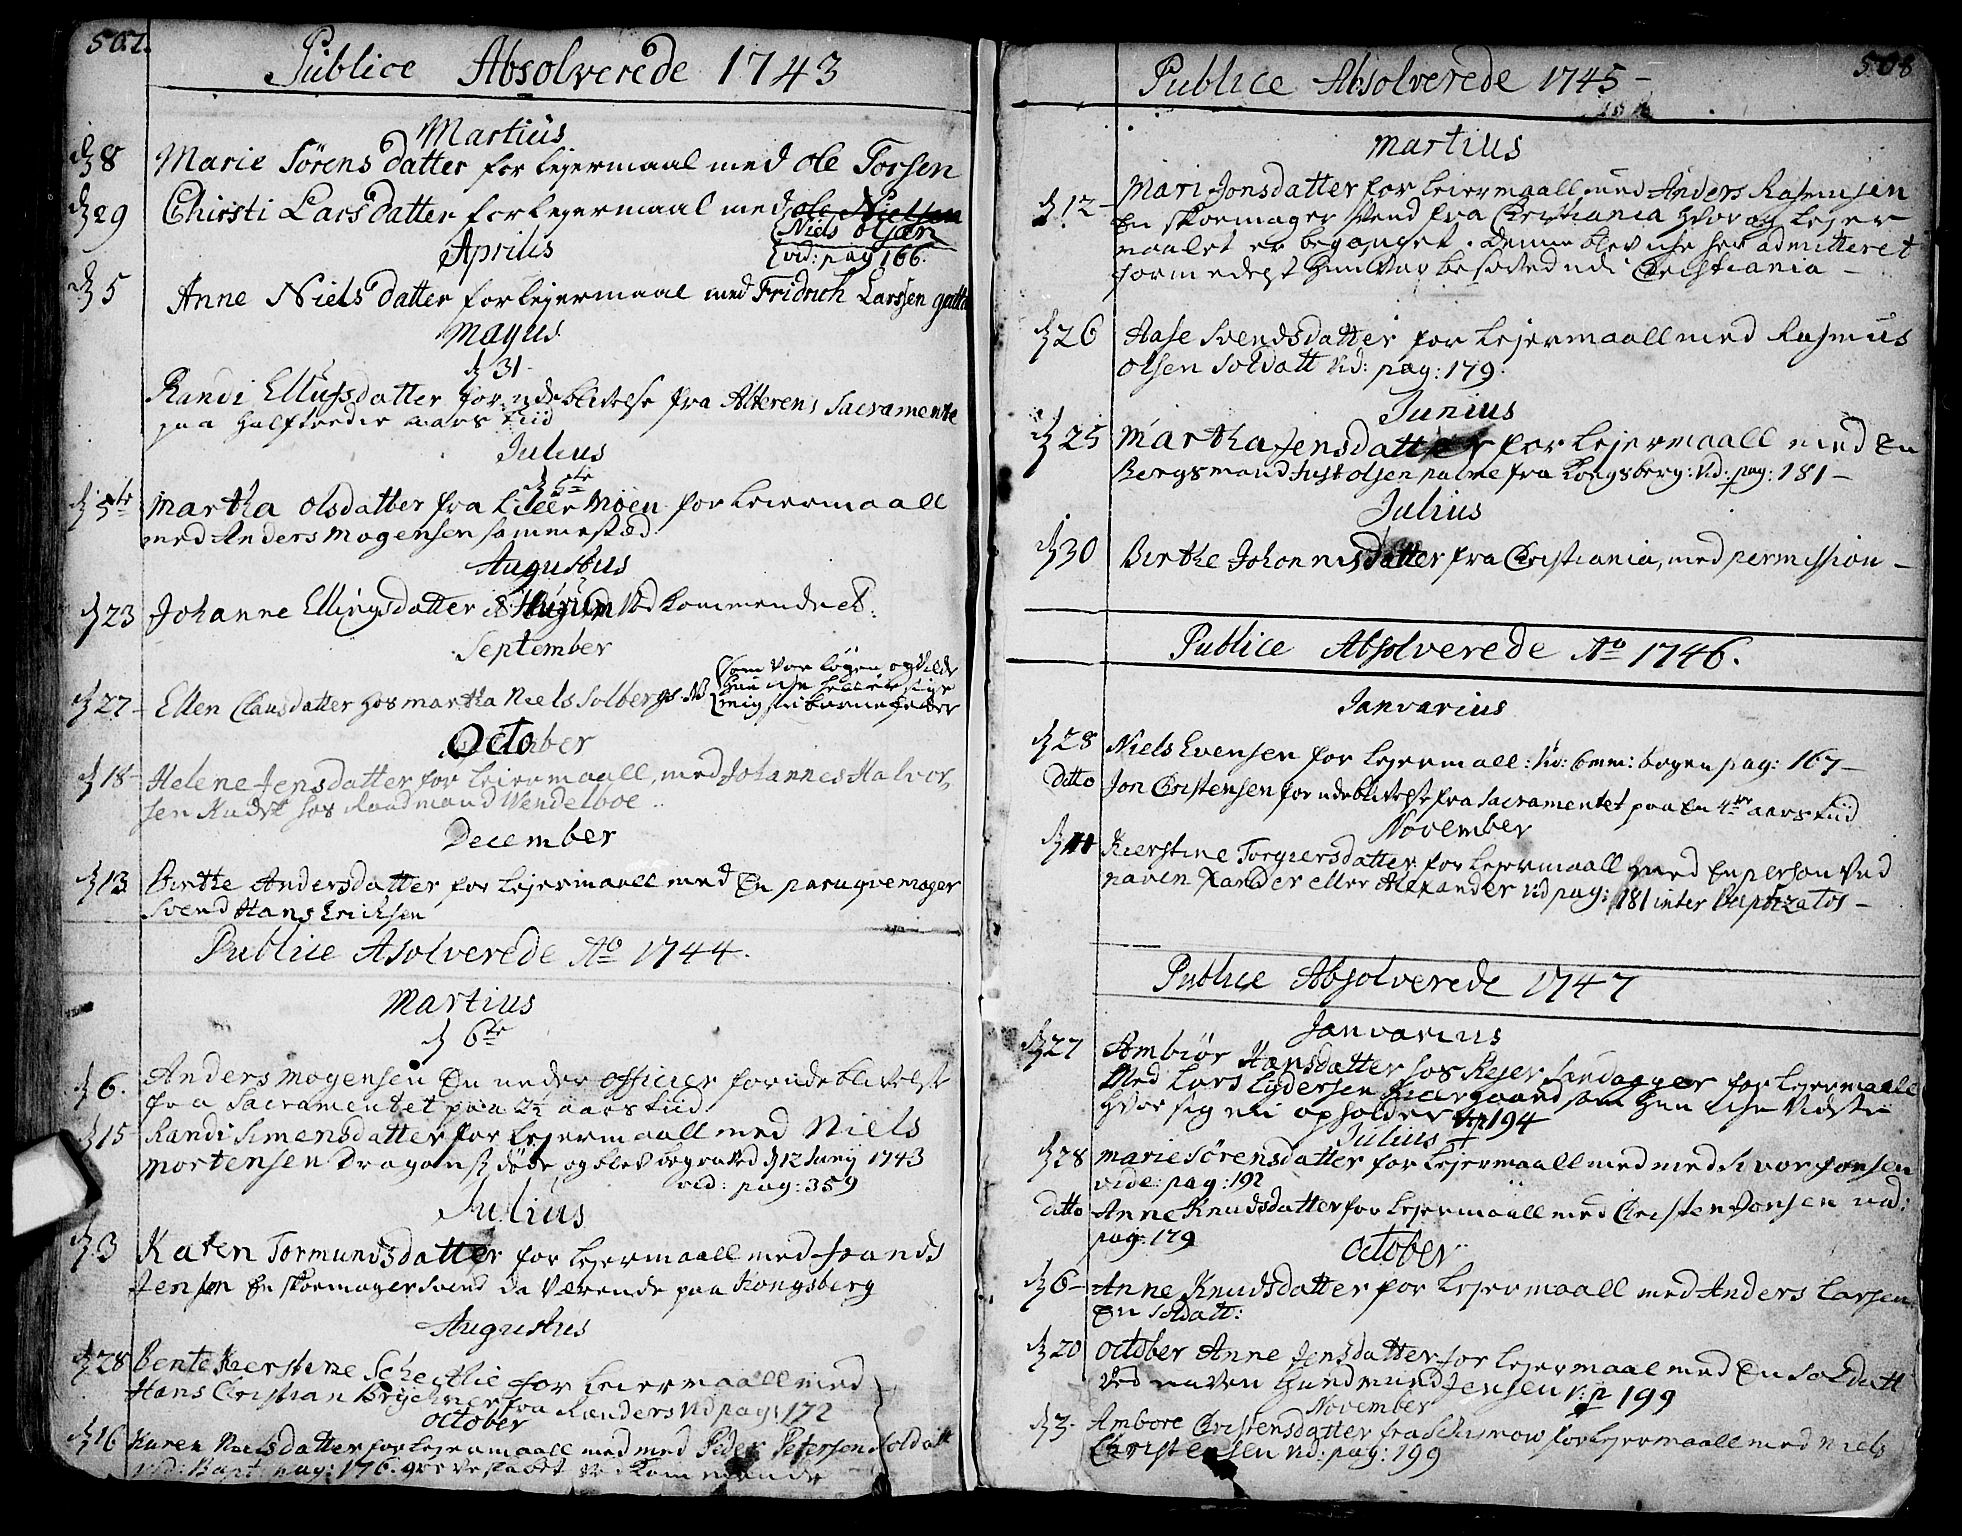 507.
Publice Absolverede 1743
Martius
d 8 Marie Sörens datter for lejermaal med Ole Torsen
d 29 Chirsti Lars datter for lejermaal med Ole Nielsen
Niels Olsen
Aprilis
vid: pag 166.
d 5 Anne Niels datter for lejermaal med Fridrich Larssen
Mayus
d 31.
Randi Ellufsdatter for udeblivelse fra Alterens Sacramente
paa halftredie aars tiid
Julius
d 5te
d 5te Martha Olsdatter fra Lilleer Moen for Leiermaall
med Anders Mogensen sammestæd
Augustus
d 23 Johanne Ellingsdatter Hurum Vedkommende
September
d 27 Ellen Clausdatter hos Martha Niels Solbergs NB
som var løgen og vilde
October
d 18 Helene Jensdatter for Leiermaall, med Johannes Halvor,
sen Kudsk hos Raadmand Wendelboe ..
December
d 13 Birthe Andersdatter for Lejermaall med En paruqvemager
Svend Hans Eriksen
Publice Asolverede Ao 1744.
Martius
d 6te
d 6. Anders Mogensen En under officier for udeblivelse
fra Sacramentet paa 2½ aars tiid
d 15 Randi Simensdatter for Lejermaall med Niels
Mortensen Dragon døde, og blev begraved d 12 Junij 1743
vid: pag: 359
Julius
d 3 Karen Tormundsdatter for Lejermaall med
Jensen En skoemagersvend da Værende paa Kongsberg
Augustus
d 28 Bente Kierstine for Leiermaall med
Hans Christian fra Randers Vid pag: 172
October
d 16 Karen Nielsdatter for Lejermaall med med Peder Petersen Soldatt
vid: Bapt: pag: 176. grevskabet vedkommende
508
Publice Absolverede 1745-
Martius
d 12- Mari Jonsdatter for Leiermaall med Anders Rasmusen
En skoemager Svend fra Christiania hvor og Lejer
maalet er begaaget. Denne blev icke her admitteret
formedelst hun Christiania -
d 26 Aase Svendsdatter for Lejermaall med Rasmus
Olsen Soldatt vid: pag: 179.
Junius
d 25 Martha Jensdatter for Lejermaall med En
Bergsmand Just Olsen fra Kongsberg: vid: pag: 181 -
Julius
d 30 Birthe Johannisdatter fra Christiania, med permission -
Publice Absolverede Ao 1746.
Janvarius
d 28 Niels Evensen for Lejermaall: bogen pag: 167 -
ditto Jon Christensen for udeblivelse fra Sacramentet paa En 4re aars tiid
November
d 11 Kierstine Torgiersdatter for Lejermaall med En person Ved
naven Xander eller Alexander vid pag: 181 inter Baptizatos -
Publice Absolverede 1747
Janvarius
d 27 Ambiør Hansdatter hos Rejer for Lejermaall
Med Lars Lydersen som hun icke vidste
hvor sig nu opholder p 194
Julius
d 28 Marie Sörensdatter for Lejermaall med med
vide: pag: 192
ditto Anne Knudsdatter for Lejermaall med Christen Jonsen vid:
pag: 179
October
d 6- Anne Knudsdatter for Lejermaall med Anders Larsen
En Soldatt:
d 20 October Anne Jensdatter for Lejermaal med En Soldatt
Ved naven Gundmund Jensen v: p 199
November
d 3. Ambore Christensdatter fra for Lejermaall med Niels
Christensen vid: pag: 199